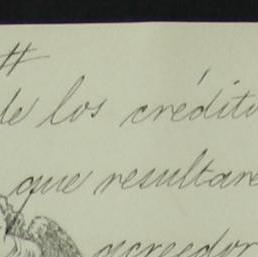 #
de los crédito
que resultare
acreedor